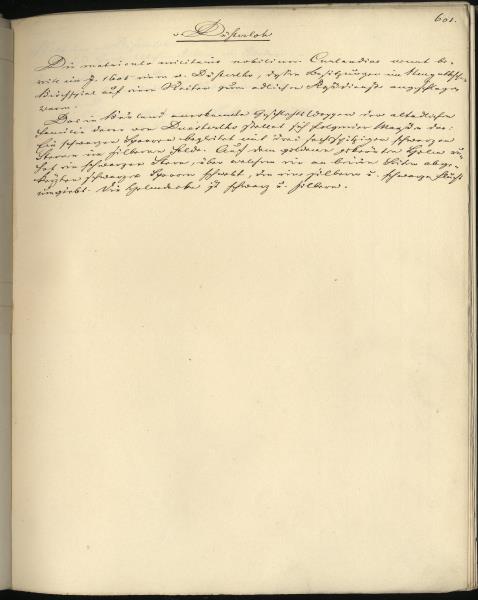 601.
v. Düsterloh
Die matricula militaris nobilium Curlandiae nennt be-
reits im J. 1605 einen v. Düsterloh, dessen Besitzungen im
Kirchspiel auf einen Reiter zum adlichen Roßdienste angeschlagen
waren.
Das in Kurland anerkannte Geschlechtswappen der altadlichen
Familie derer von Duesterloh stellet sich folgender Maaßen dar:
Ein schwarzer Sparren begleitet mit drei sechsspitzigen schwarzen
Sternen im silbernen Felde. Auf dem goldenen gekrönten Helm
ein schwarzer Stern, über welchem ein an beiden Seiten abge-
schwarzer Sparren schwebt, den eine silberne u. schwarze Flucht
umgiebt. Die Helmdecke ist schwarz u. silbern.